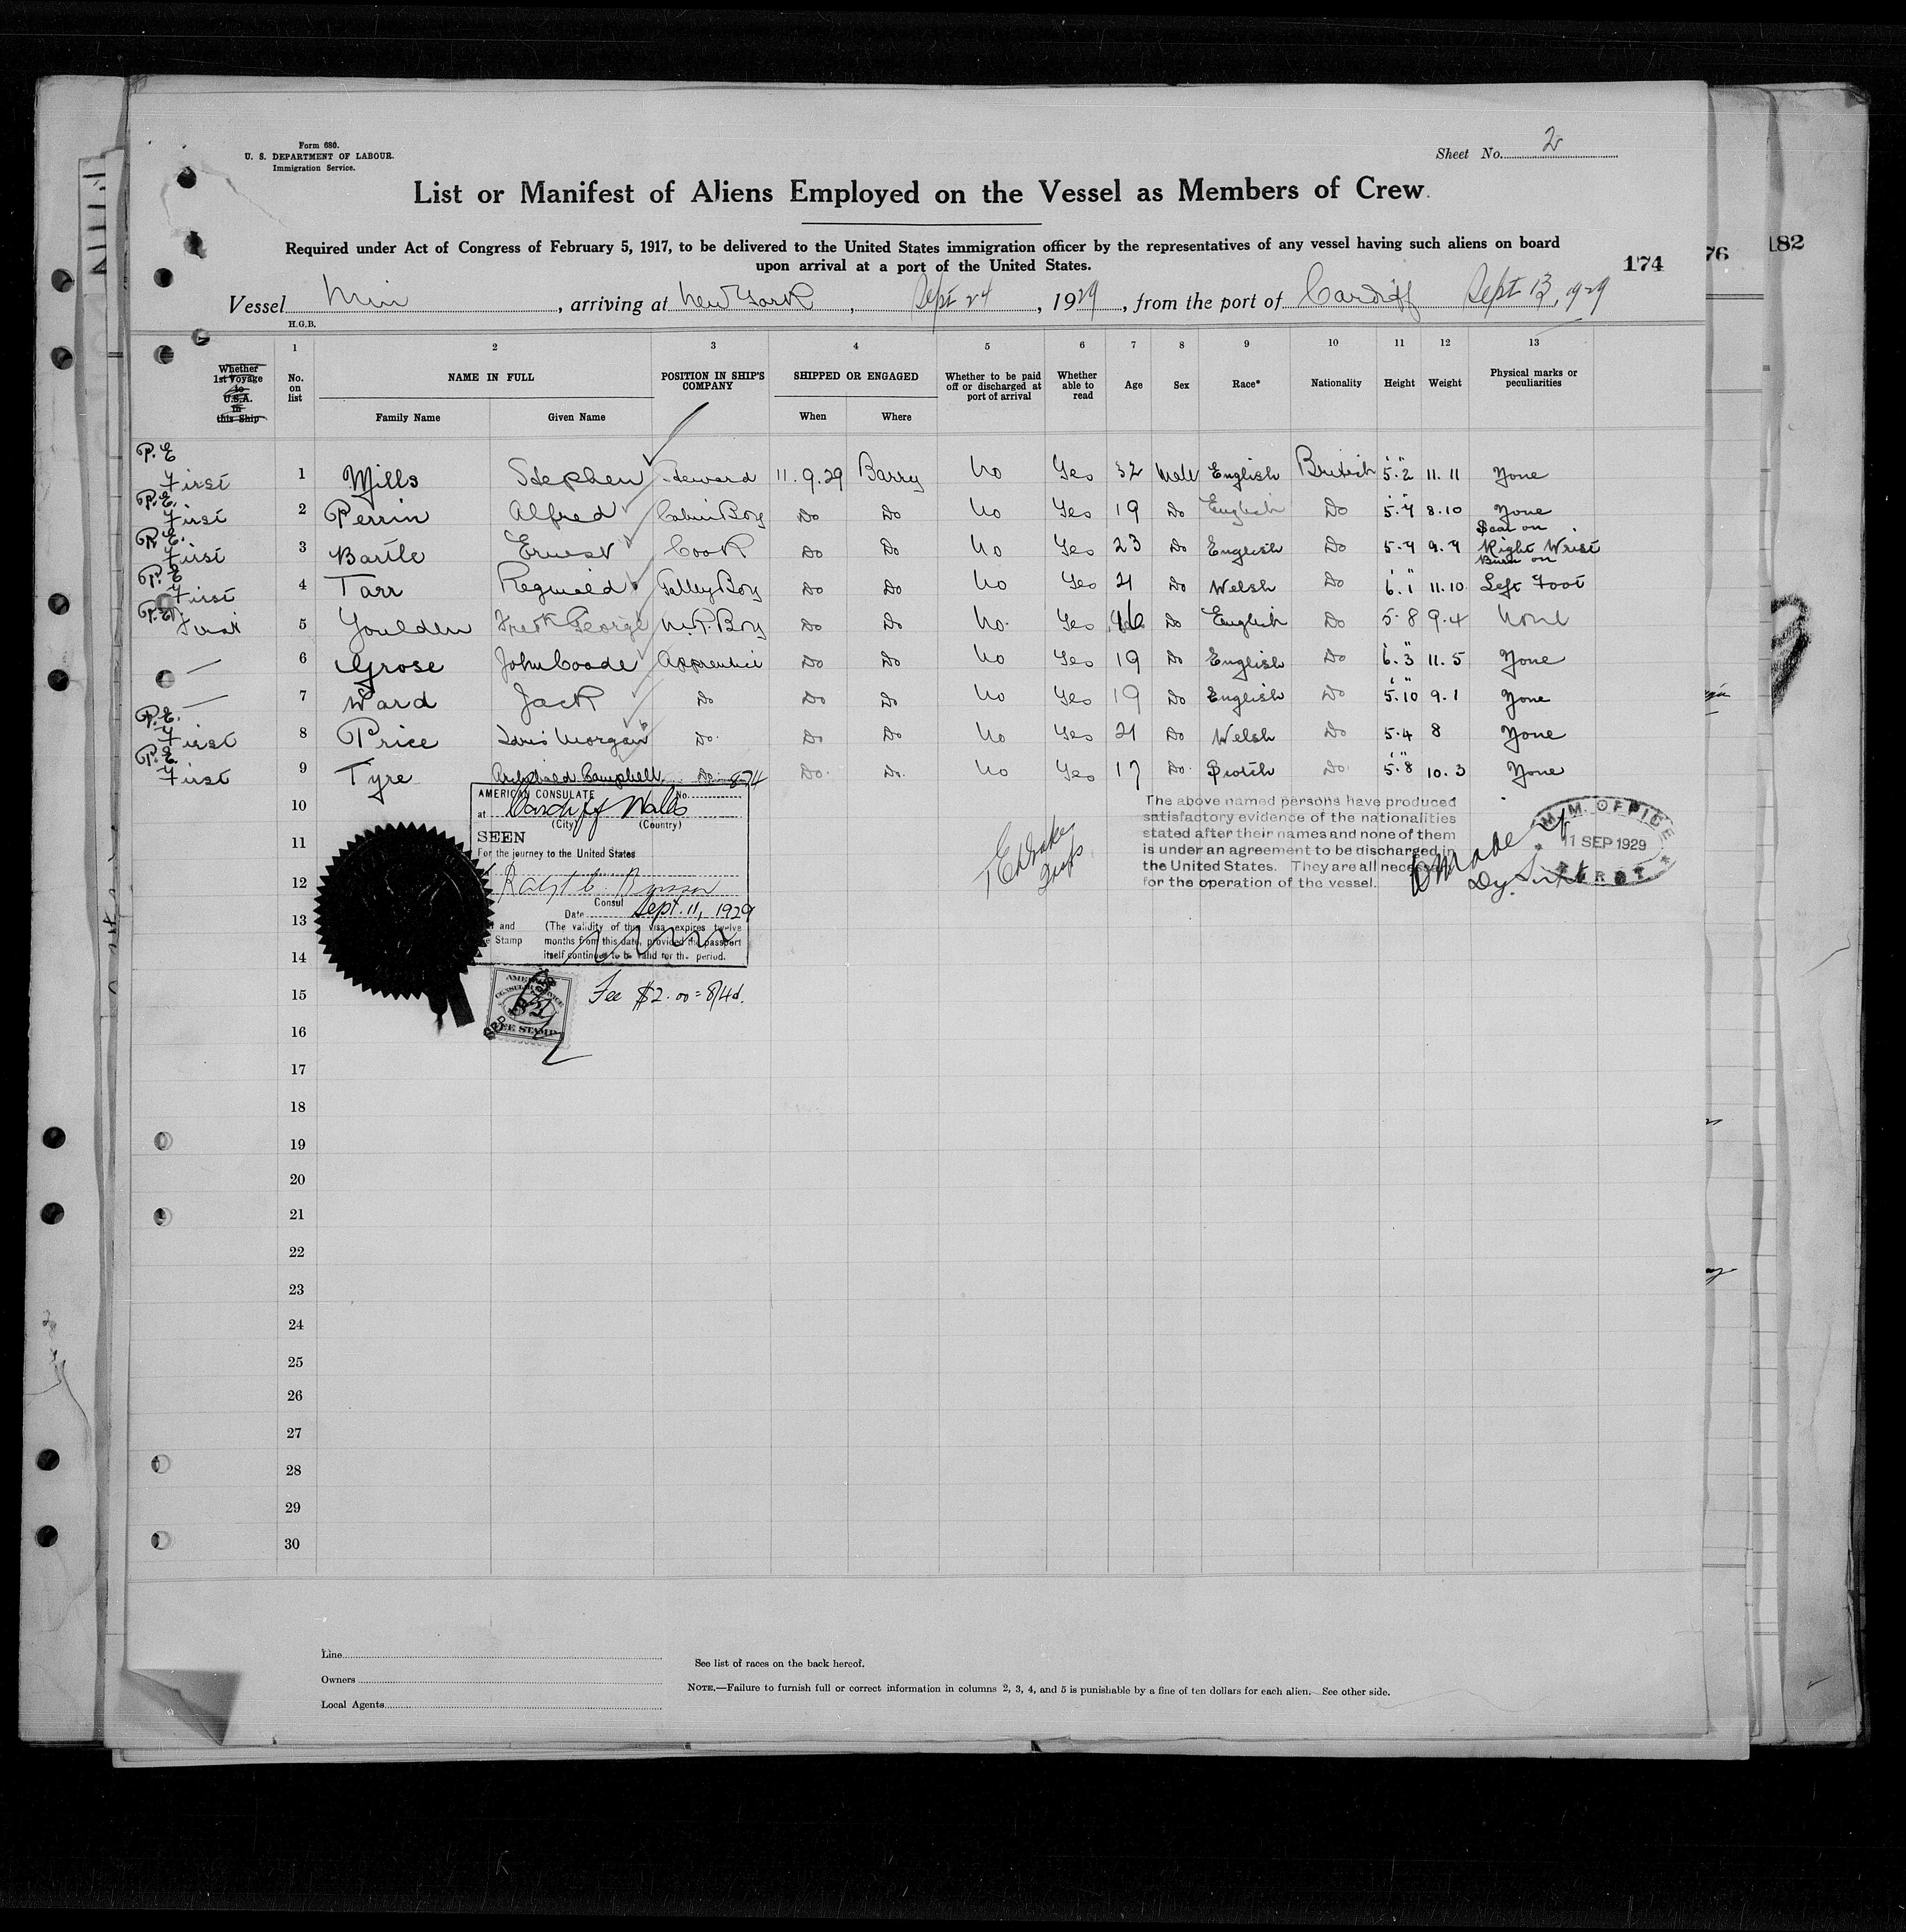 Form 680.
U. S. DEPARTMENT OF LABOUR.
Immigration Service.
Sheet No. 2
List or Manifest of Aliens Employed on the Vessel as Members of Crew.
Required under Act of Congress of February 5, 1917, to be delivered to the United States immigration officer by the representatives of any vessel having such aliens on board
upon arrival at a port of the United States.
174 76 182
Vessel Min, arriving at New York, Sept 24, 1929, from the port of Cardiff Sept 13, 1929
H.G.B.
1 2 3 4 5 6 7 8 9 10 11 12 13
Whether 1st Voyage to U.S.A. in this Ship
No. on list
NAME IN FULL
Family Name Given Name
POSITION IN SHIP'S COMPANY
SHIPPED OR ENGAGED
When Where
Whether to be paid off or discharged at port of arrival
Whether able to read
Age Sex Race* Nationality Height Weight
Physical marks or peculiarities
P.E. First 1 Mills Stephen Steward 11.9.29 Barry No Yes 32 Male English British 5.2 11.11 None
P.E. First 2 Perrin Alfred Cabin Boy Do Do No Yes 19 Do English Do 5.7 8.10 None
P.E. First 3 Bartle Ernest Cook Do Do No Yes 23 Do English Do 5.7 9.7 Scar on Right Wrist
P.E. First 4 Tarr Reginald Galley Boy Do Do No Yes 21 Do Welsh Do 6.1 11.10 Burn on Left Foot
P.E. First 5 Youlden Fredk George M.R. Boy Do Do No. Yes 16 Do English Do 5.8 9.4 None
— 6 Grose John Coode Apprentice Do Do No Yes 19 Do English Do 6.3 11.5 None
— 7 Ward Jack Do Do Do No Yes 19 Do English Do 5.10 9.1 None
P.E. First 8 Price Idris Morgan Do. Do Do No Yes 21 Do Welsh Do 5.4 8 None
P.E. First 9 Tyre Archibald Campbell Do Do. Do. No Yes 17 Do. Scotch Do. 5.8 10.3 None
10
11
12
13
14
15
16
17
18
19
20
21
22
23
24
25
26
27
28
29
30
AMERICAN CONSULATE No. 874
at Cardiff Wales
(City) (Country)
SEEN
For the journey to the United States
Consul
Date Sept. 11, 1929
and (The validity of this visa expires twelve
Stamp months from this date, provided the passport
itself continues to be valid for the period.
AMERICAN
CONSULAR SERVICE
$2
FEE STAMP
Fee $2.00 = 8/4d.
The above named persons have produced
satisfactory evidence of the nationalities
stated after their names and none of them
is under an agreement to be discharged in
the United States. They are all necessary
for the operation of the vessel.
M.M. OFFICE
11 SEP 1929
Line
Owners
Local Agents
See list of races on the back hereof.
NOTE.—Failure to furnish full or correct information in columns 2, 3, 4, and 5 is punishable by a fine of ten dollars for each alien. See other side.